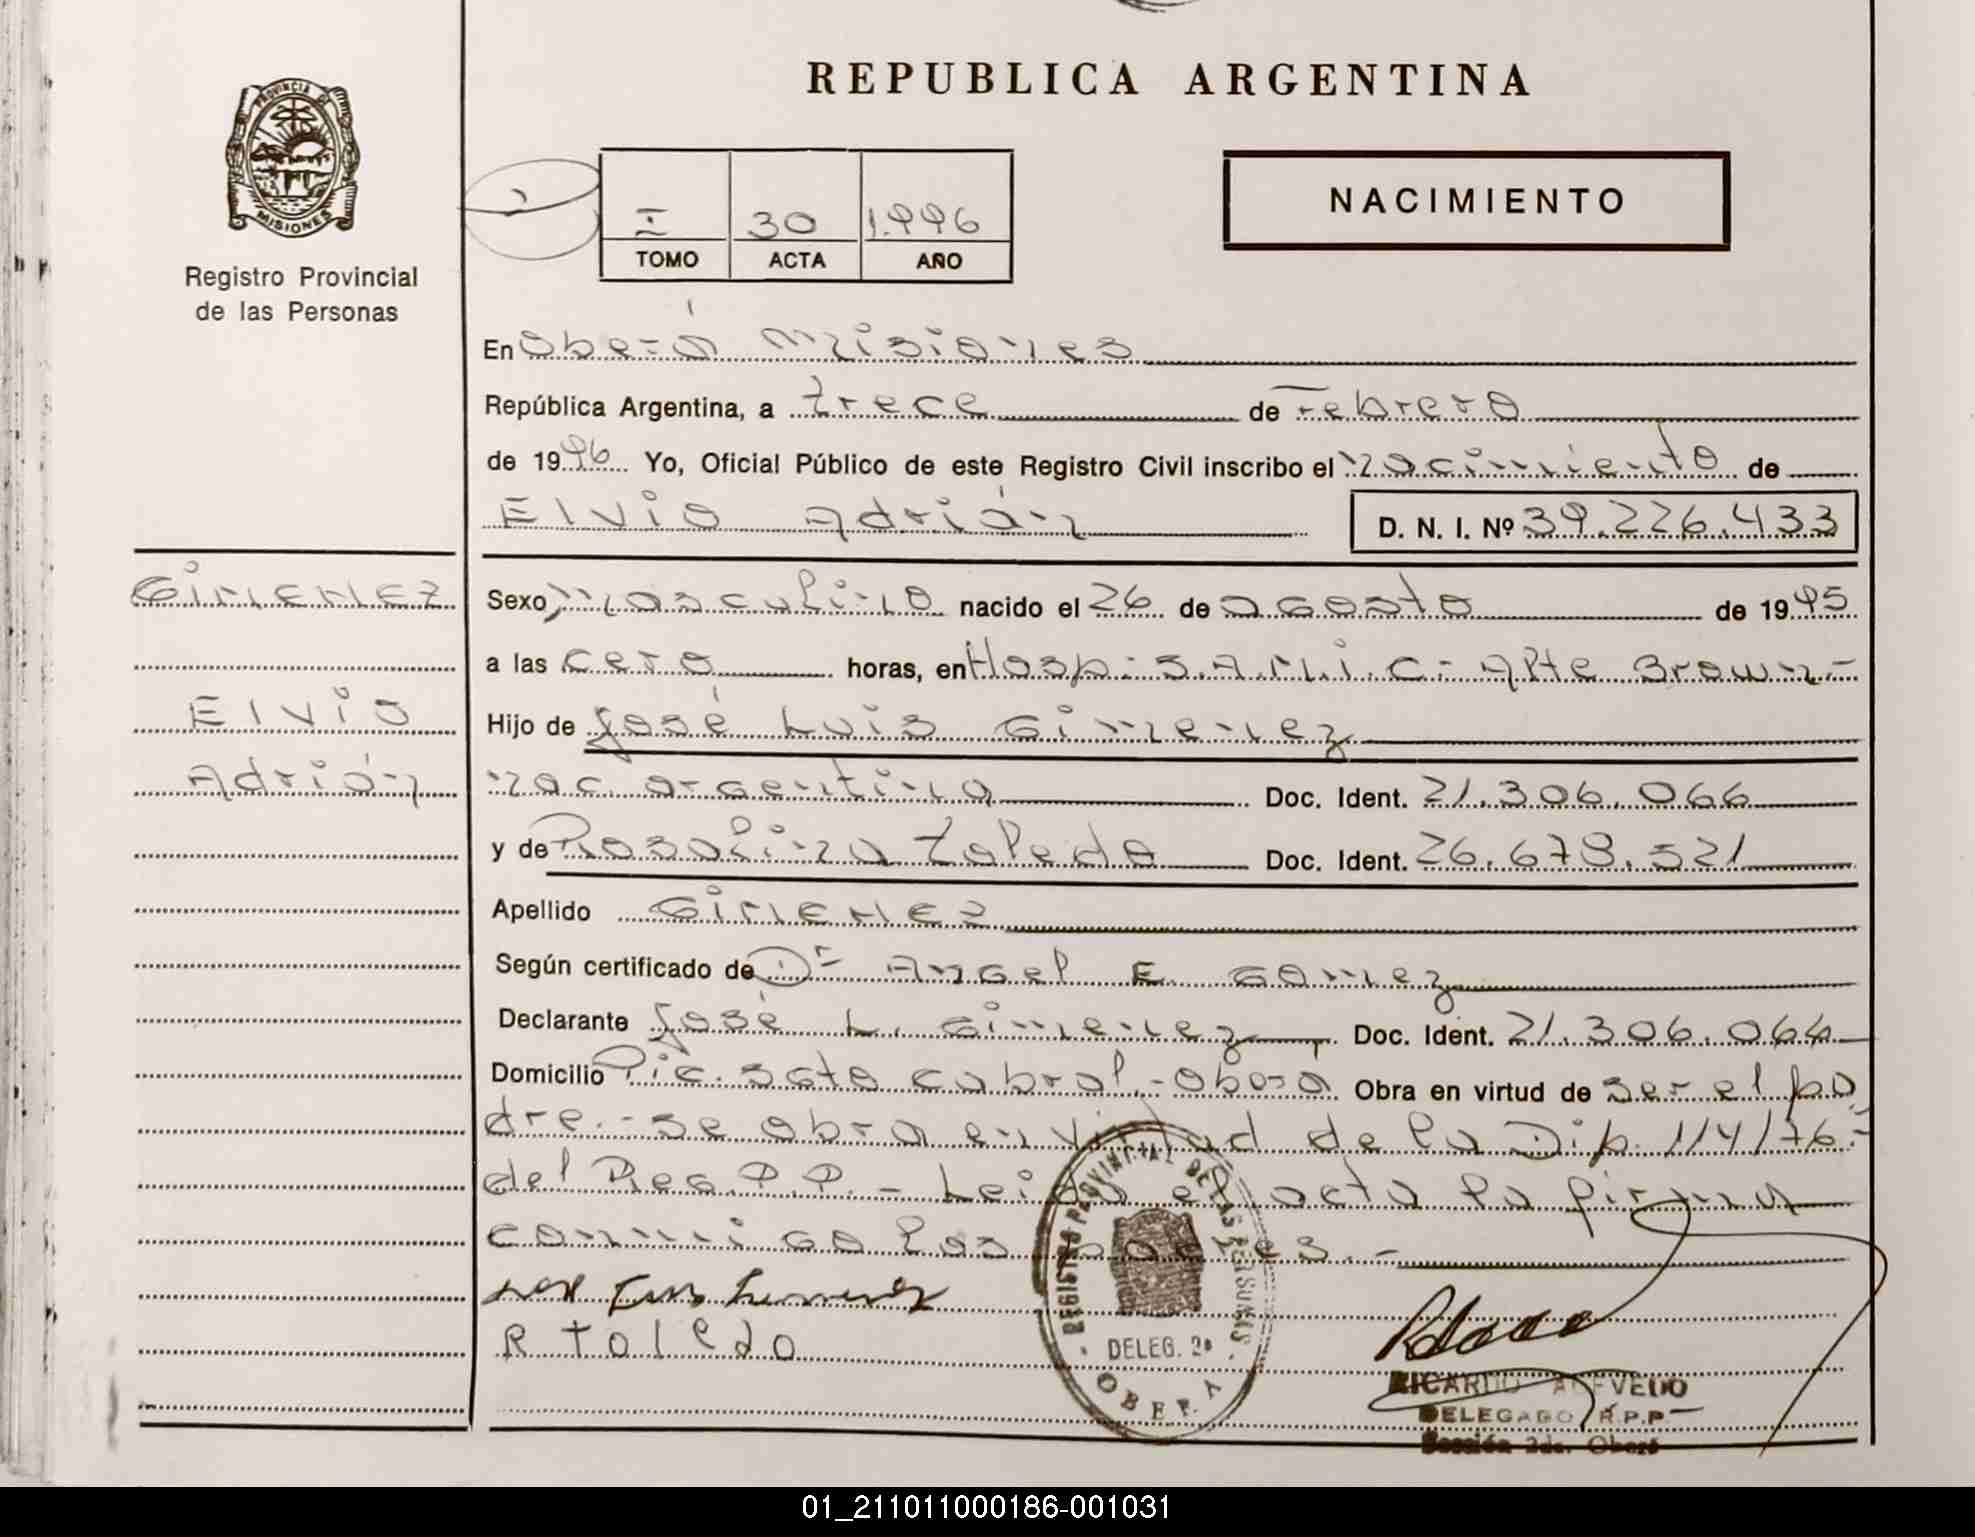 REPUBLICA ARGENTINA
PROVINCIA DE MISIONES
Registro Provincial
de las Personas
I 30 1.996
TOMO ACTA AÑO
NACIMIENTO
En Oberá Misiones
República Argentina, a trece de Febrero
de 1996 Yo, Oficial Público de este Registro Civil inscribo el nacimiento de
Elvio Adrián D. N. I. Nº 39.226.433
GIMENEZ
Elvio
Adrián
Sexo masculino nacido el 26 de agosto de 1995
a las cero horas, en Hosp. S.A.M.i.C- Alte Brown-
Hijo de José Luis Gimenez
nac. argentina Doc. Ident. 21.306.066
y de Rosalina Toledo Doc. Ident. 26.678.521
Apellido GIMENEZ
Según certificado de Dr Angel E. Gomez
Declarante José L. Gimenez Doc. Ident. 21.306.066
Domicilio Pic. Sgto Cabral.-Oberá Obra en virtud de ser el pa
dre.-Se obra en virtud de la Dip. 114/76.-
del Reg.P.P.- Leida el acta la firman
conmigo los padres.-
José Luis Gimenez
R Toledo
REGISTRO PROVINCIAL DE LAS PERSONAS
DELEG. 2a
OBERA
RICARDO ACEVEDO
DELEGADO R.P.P
Sección 2da. Oberá
01_211011000186-001031